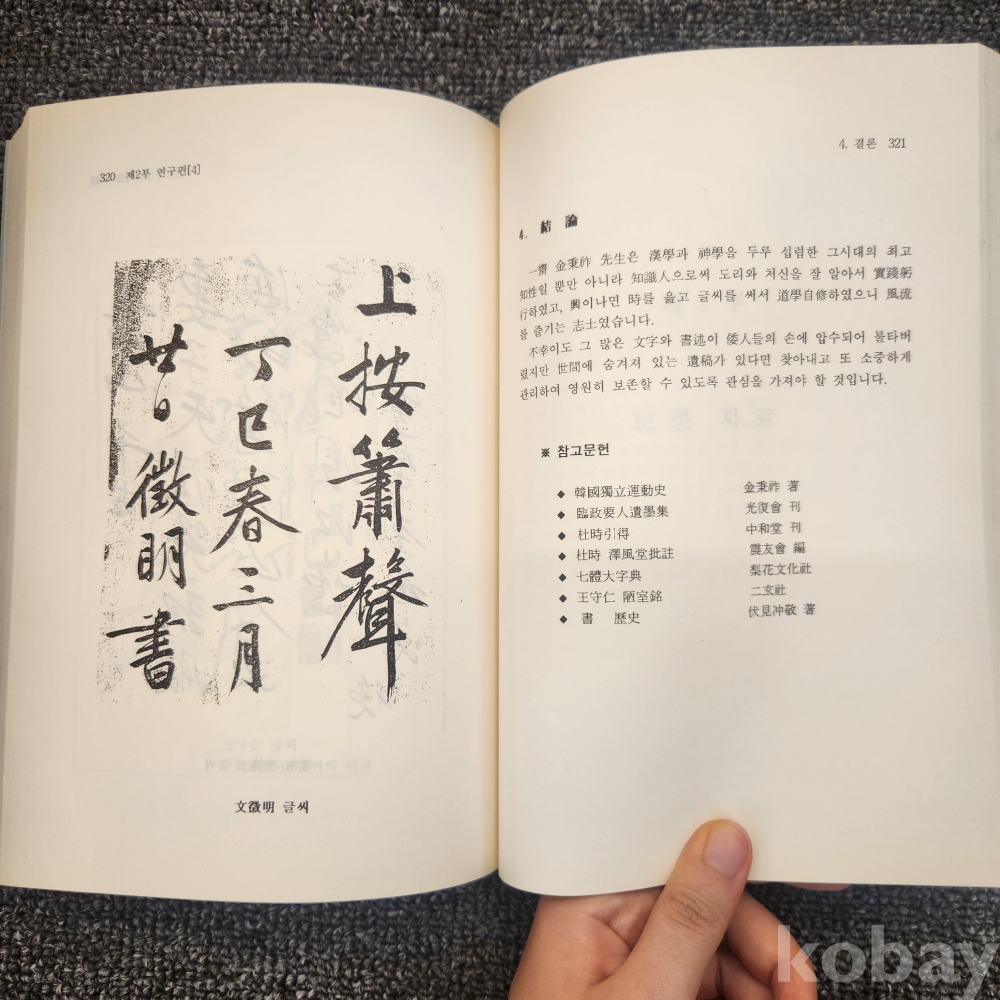 320 제2부 연구편[4]
上按簫聲
丁巳春三月
廿日徵明書
文徵明 글씨
4. 결론 321
4. 結 論
一齋 金秉祚 先生은 漢學과 神學을 두루 섭렵한 그시대의 최고
知性일 뿐만 아니라 知識人으로써 도리와 처신을 잘 알아서 實踐躬
行하였고, 興이나면 時를 읊고 글씨를 써서 道學自修하였으니 風流
를 즐기는 志士였습니다.
不幸이도 그 많은 文字와 書述이 倭人들의 손에 압수되어 불타버
렸지만 世間에 숨겨져 있는 遺稿가 있다면 찾아내고 또 소중하게
관리하여 영원히 보존할 수 있도록 관심을 가져야 할 것입니다.
※ 참고문헌
◆ 韓國獨立運動史 金秉祚 著
◆ 臨政要人遺墨集 光復會 刊
◆ 杜時引得 中和堂 刊
◆ 杜時 澤風堂批註 震友會 編
◆ 七體大字典 梨花文化社
◆ 王守仁 陋室銘 二玄社
◆ 書 歷史 伏見冲敬 著
kobay